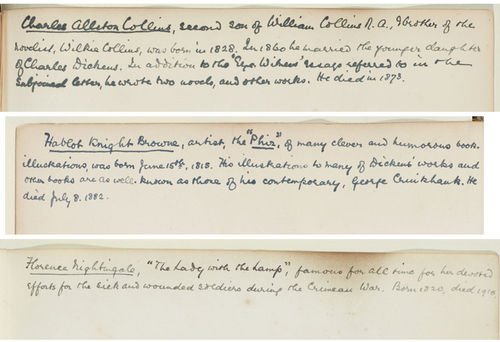 Charles Allston Collins, second son of William Collins R.A., & brother of the
novelist, Wilkie Collins, was born in 1828. In 1860 he married the younger daughter
of Charles Dickens. In addition to the "Eye Witness" essays referred to in the
subjoined letter, he wrote two novels, and other works. He died in 1873.
Hablot Knight Browne, artist, the "Phiz," of many clever and humorous book
illustrations, was born June 15th, 1815. His illustrations to many of Dickens' works and
other books are as well-known as those of his contemporary, George Cruikshank. He
died July 8. 1882.
Florence Nightingale, "The Lady with the Lamp", famous for all time for her devoted
efforts for the sick and wounded soldiers during the Crimean War. Born 1820, died 1910